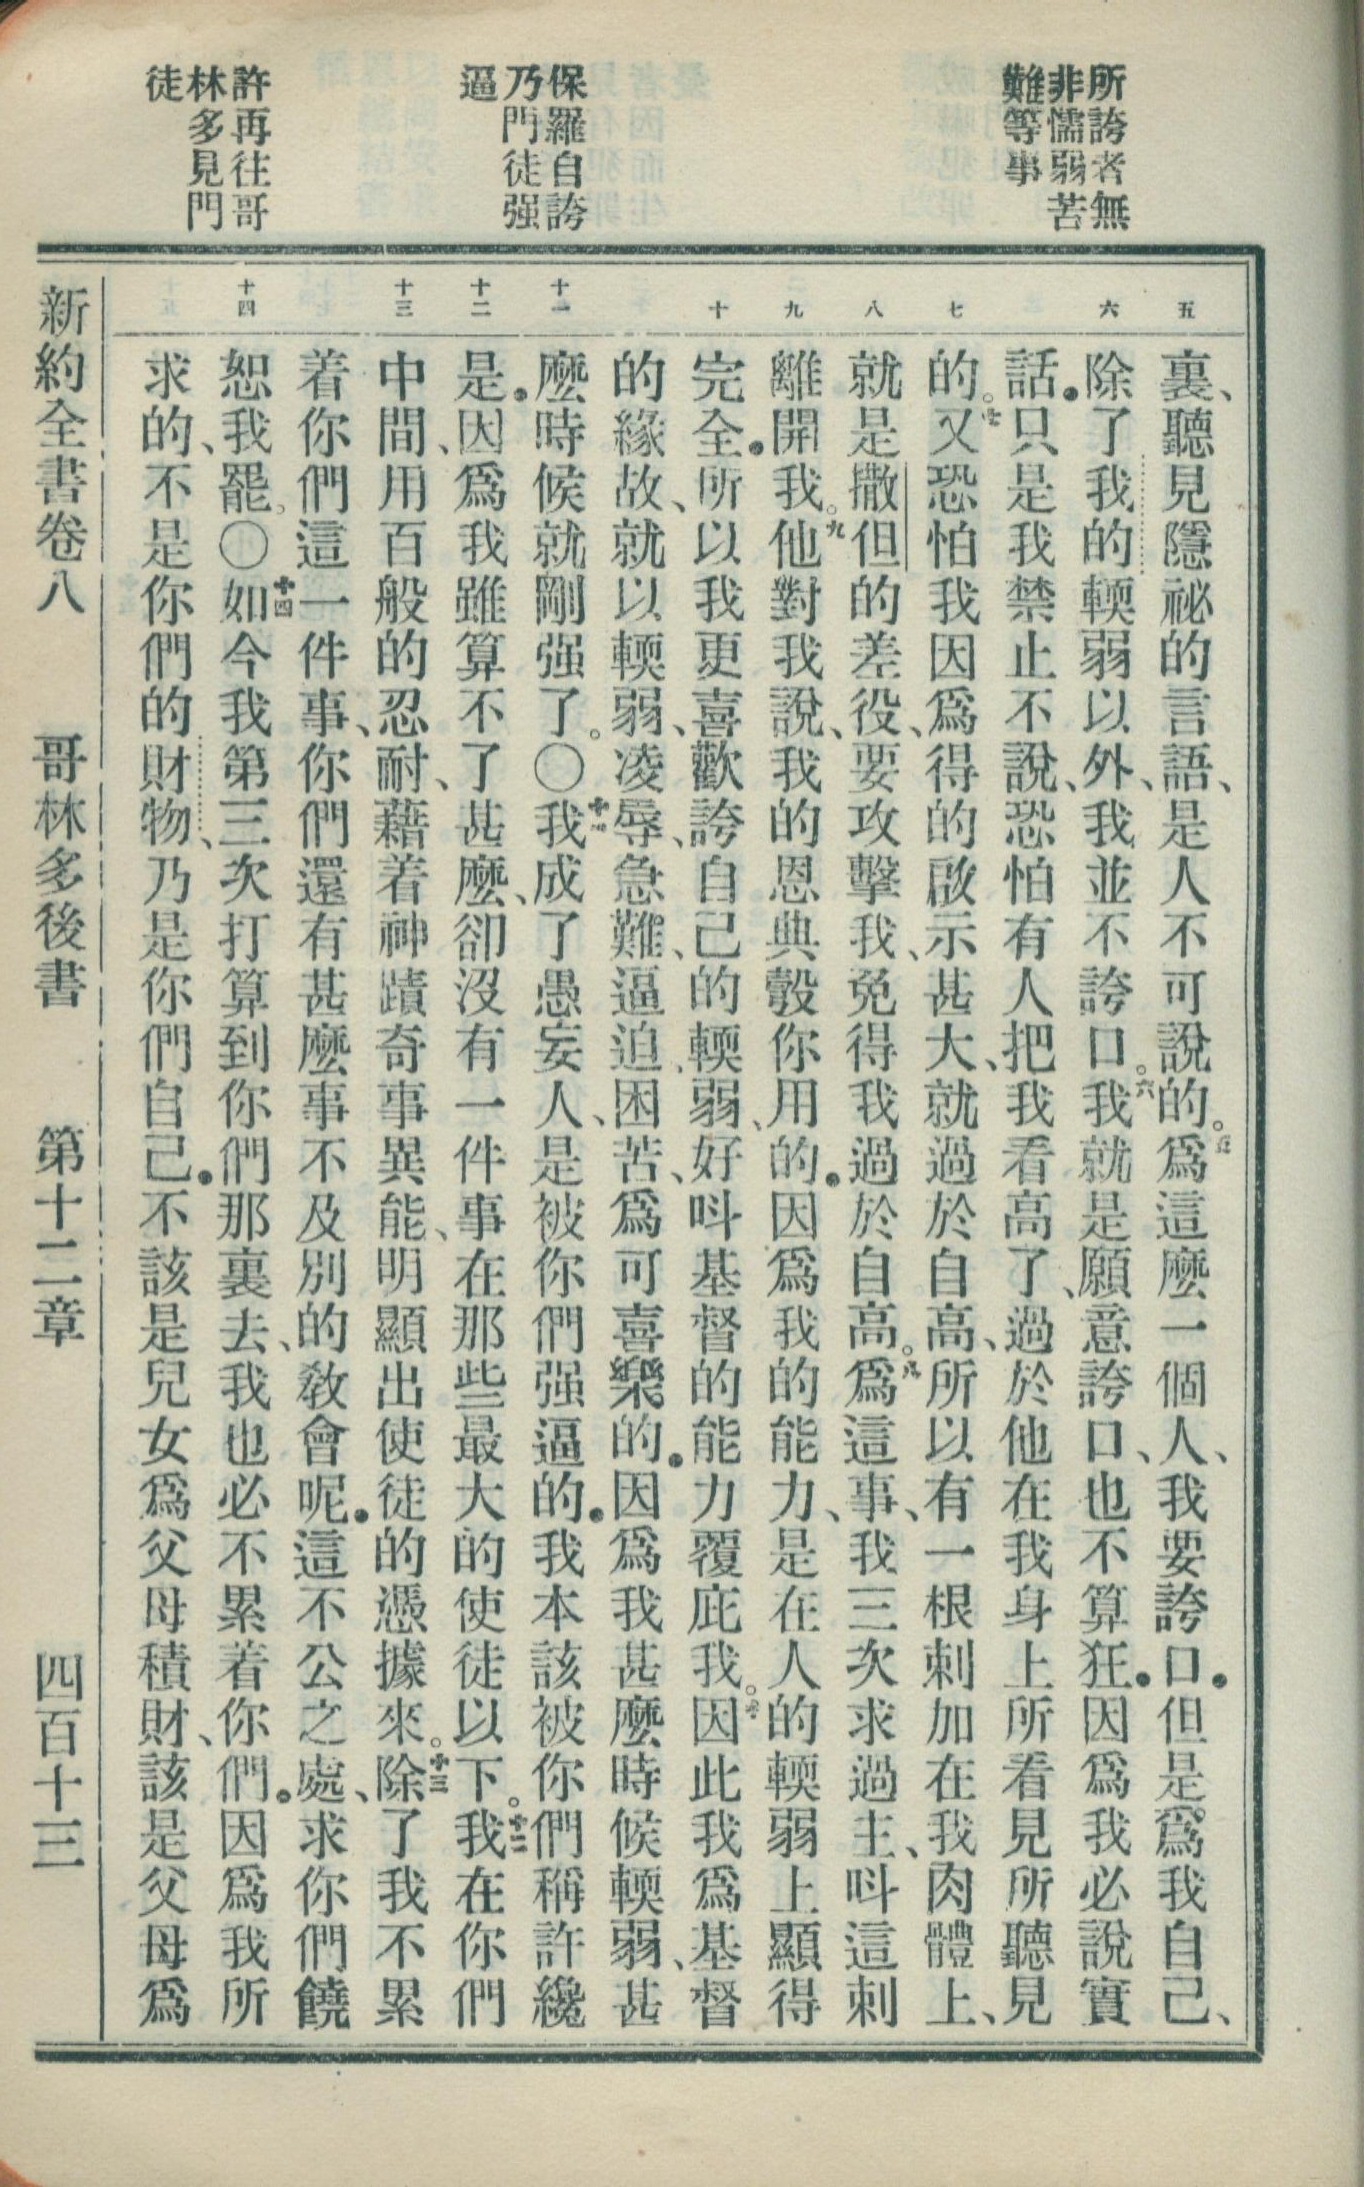 所誇者無
非懦弱苦
難等事
保羅自誇
乃門徒强
逼
許再往哥
林多見門
徒
五
六
七
八
九
十
十一
十二
十三
十四
裏、聽見隱祕的言語、是人不可說的。五爲這麼一個人、我要誇口．但是爲我自己、
除了我的輭弱以外、我並不誇口。六我就是願意誇口、也不算狂．因爲我必說實
話．只是我禁止不說、恐怕有人把我看高了、過於他在我身上所看見所聽見
的。七又恐怕我因爲得的啟示甚大、就過於自高、所以有一根刺加在我肉體上、
就是撒但的差役、要攻擊我、免得我過於自高。八爲這事、我三次求過主、呌這刺
離開我。九他對我說、我的恩典彀你用的．因爲我的能力、是在人的輭弱上顯得
完全．所以我更喜歡誇自己的輭弱、好呌基督的能力覆庇我。十因此我爲基督
的緣故、就以輭弱、凌辱、急難、逼迫、困苦、爲可喜樂的．因爲我甚麼時候輭弱、甚
麼時候就剛强了。〇十一我成了愚妄人、是被你們强逼的．我本該被你們稱許纔
是．因爲我雖算不了甚麼、卻沒有一件事在那些最大的使徒以下。十二我在你們
中間、用百般的忍耐、藉着神蹟奇事異能、明顯出使徒的憑據來。十三除了我不累
着你們這一件事、你們還有甚麼事不及別的敎會呢．這不公之處、求你們饒
恕我罷。〇十四如今我第三次打算到你們那裏去、我也必不累着你們．因爲我所
求的、不是你們的財物、乃是你們自己．不該是兒女爲父母積財、該是父母爲
新約全書卷八　哥林多後書　第十二章　四百十三